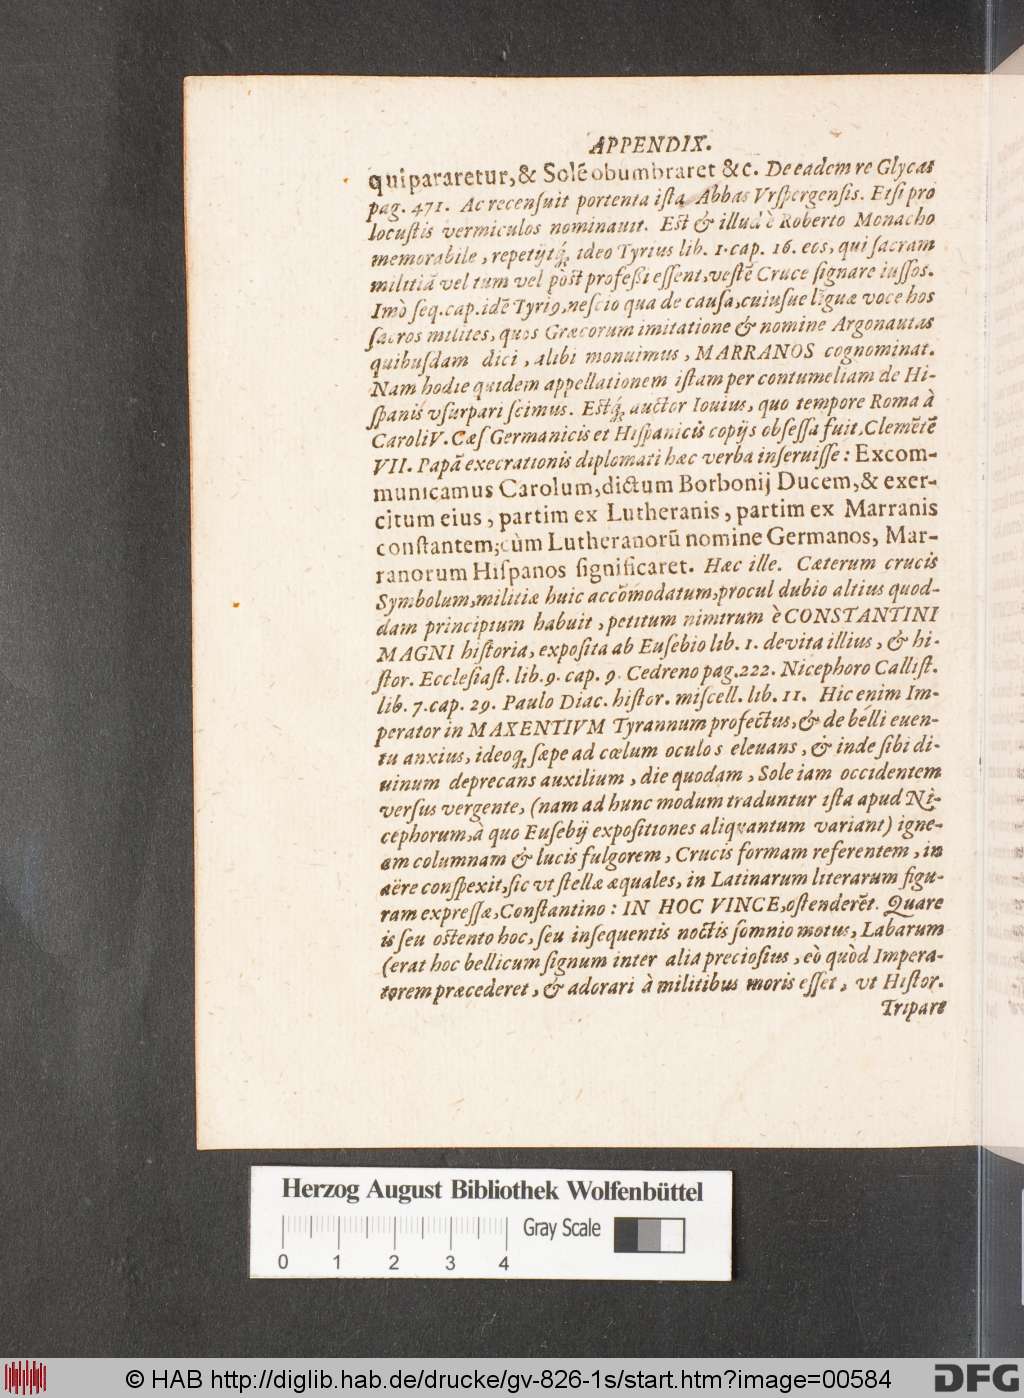 APPENDIX.
quipararetur, & Solē obumbraret &c. De eadem re Glycas
pag. 471. Ac recensuit portenta ista Abbas Vrspergensis. Etsi pro
locustis vermiculos nominauit. Est & illud è Roberto Monacho
memorabile, repetijtq́, ideo Tyrius lib. 1. cap. 16. eos, qui sacram
militiā vel tum vel pòst professi essent, vestē Cruce signare iussos.
Imò seq. cap. idē Tyri9, nescio qua de causa, cuiusue līguæ voce hos
sacros milites, quos Græcorum imitatione & nomine Argonautas
quibusdam dici, alibi monuimus, MARRANOS cognominat.
Nam hodie quidem appellationem istam per contumeliam de Hi-
spanis vsurpari scimus. Estq́, auctor Iouius, quo tempore Roma à
Caroli V. Cæs Germanicis et Hispanicis copijs obsessa fuit, Clemētē
VII. Papā execrationis diplomati hæc verba inseruisse: Excom-
municamus Carolum, dictum Borbonij Ducem, & exer-
citum eius, partim ex Lutheranis, partim ex Marranis
constantem; cùm Lutheranorū nomine Germanos, Mar-
ranorum Hispanos significaret. Hæc ille. Cæterum crucis
Symbolum, militiæ huic accōmodatum, procul dubio altius quod-
dam principium habuit, petitum nimirum è CONSTANTINI
MAGNI historia, exposita ab Eusebio lib. 1. de vita illius, & hi-
stor. Ecclesiast. lib. 9. cap. 9. Cedreno pag. 222. Nicephoro Callist.
lib. 7. cap. 29. Paulo Diac. histor. miscell. lib. 11. Hic enim Im-
perator in MAXENTIVM Tyrannum profectus, & de belli euen-
tu anxius, ideoq́, sæpe ad cœlum oculos eleuans, & inde sibi di-
uinum deprecans auxilium, die quodam, Sole iam occidentem
versus vergente, (nam ad hunc modum traduntur ista apud Ni-
cephorum, à quo Eusebij expositiones aliquantum variant) igne-
am columnam & lucis fulgorem, Crucis formam referentem, in
aëre conspexit, sic vt stellæ æquales, in Latinarum literarum figu-
ram expressæ, Constantino: IN HOC VINCE, ostenderēt. Quare
is seu ostento hoc, seu insequentis noctis somnio motus, Labarum
(erat hoc bellicum signum inter alia preciosius, eò quòd Impera-
torem præcederet, & adorari à militibus moris esset, vt Histor.
Tripart
Herzog August Bibliothek Wolfenbüttel
Gray Scale
0 1 2 3 4
© HAB http://diglib.hab.de/drucke/gv-826-1s/start.htm?image=00584
DFG